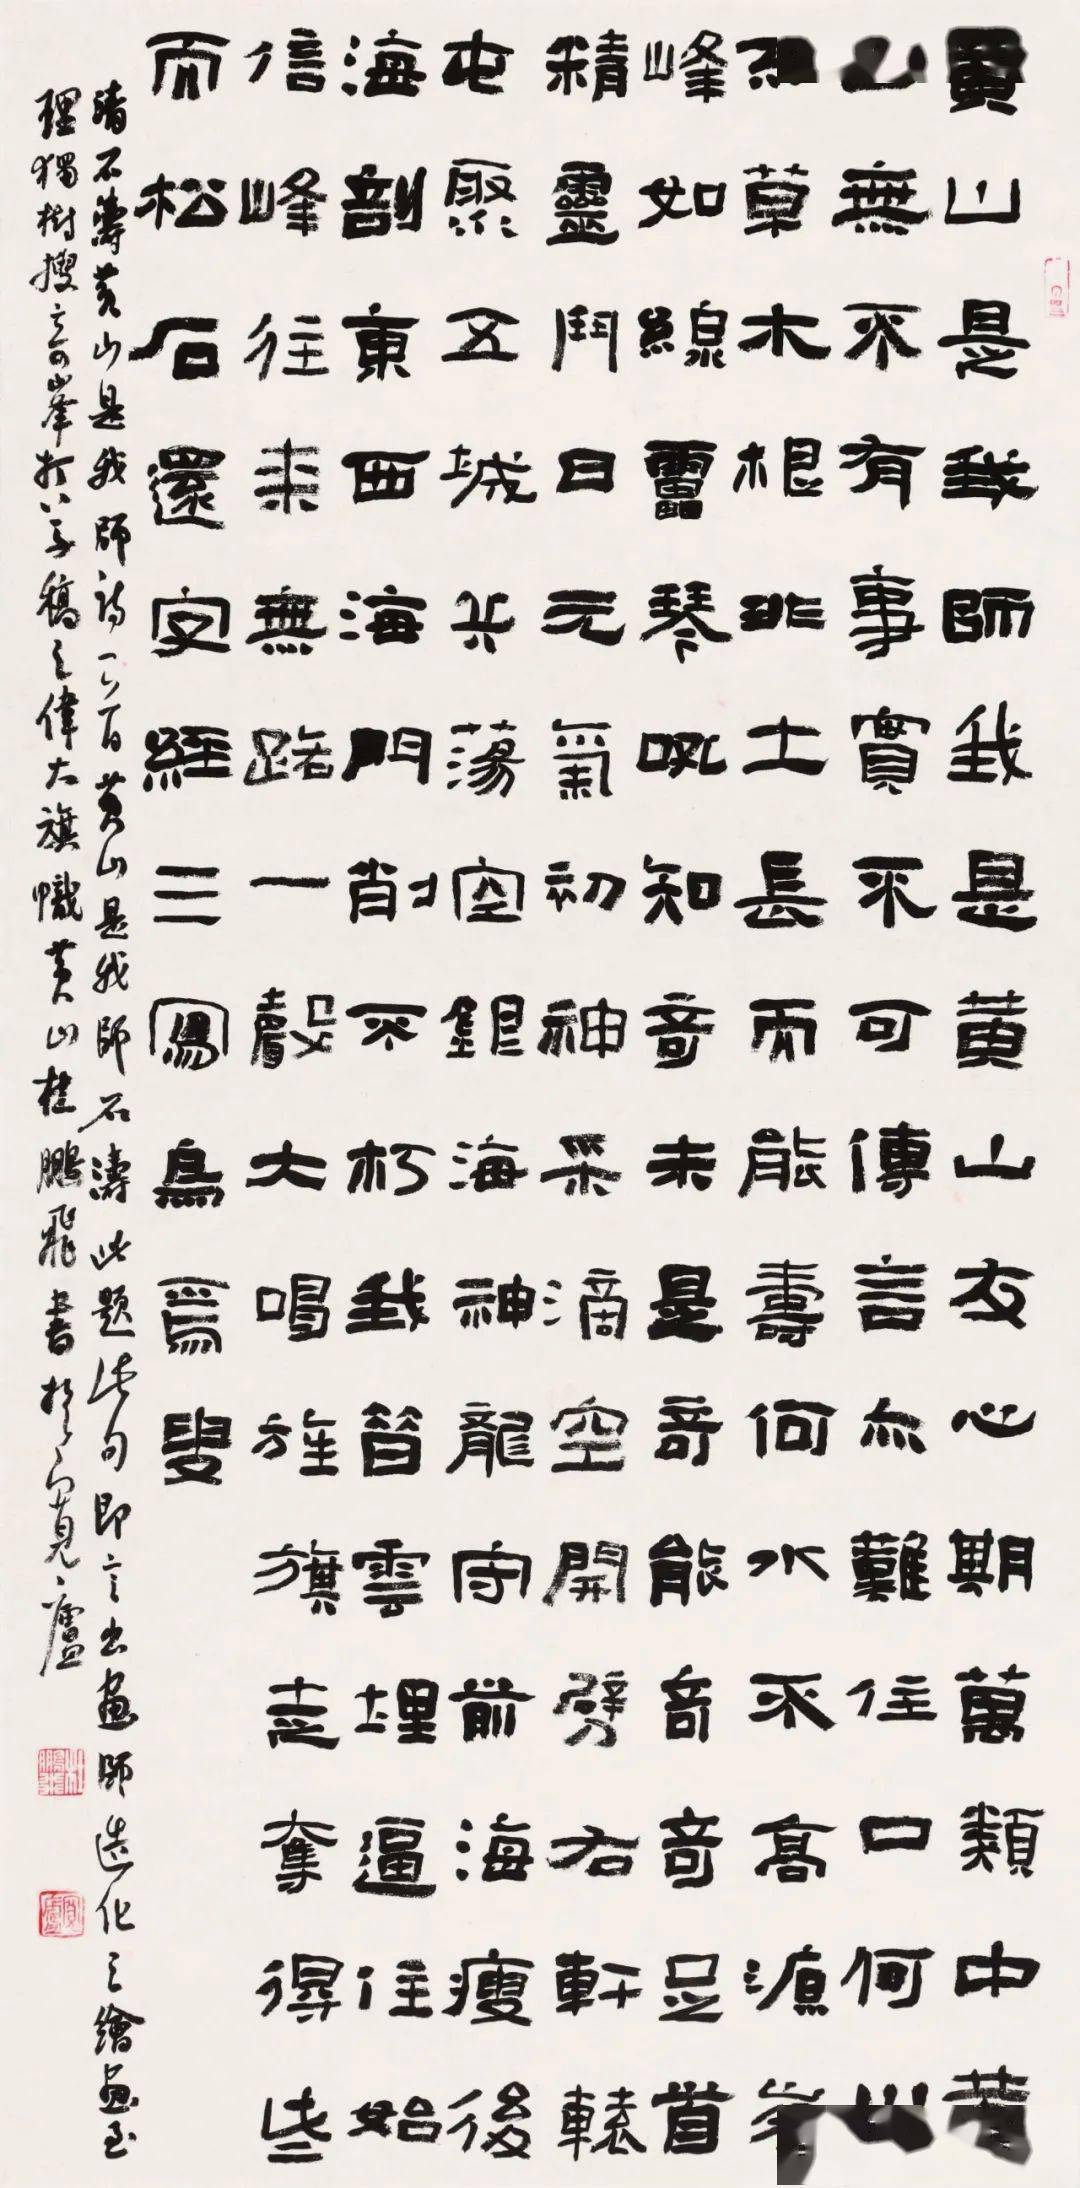 黃山是我師我是黃山友心期萬類中黃
山無不有事實不可傳言亦難住口何山
不草木根非土長而能壽何水不高源峯
峰如線雷琴吼知奇未是奇能奇奇足首
精靈鬥日元氣初神采滴空開劈右軒轅
屯聚五城兵蕩空銀海神龍守前海瘦後
海剖東西海門削不朽我昔雲埋逼住始
信峰往來無路一聲大唱旌旗走奪得些
而松石還字經三寫烏焉叟
清石濤黃山是我師詩一首黃山是我師石濤此題詩句即言出畫師造化之繪畫至
理獨樹搜奇峯打草稿之偉大旗幟黃山杜鵬飛書於寬廬